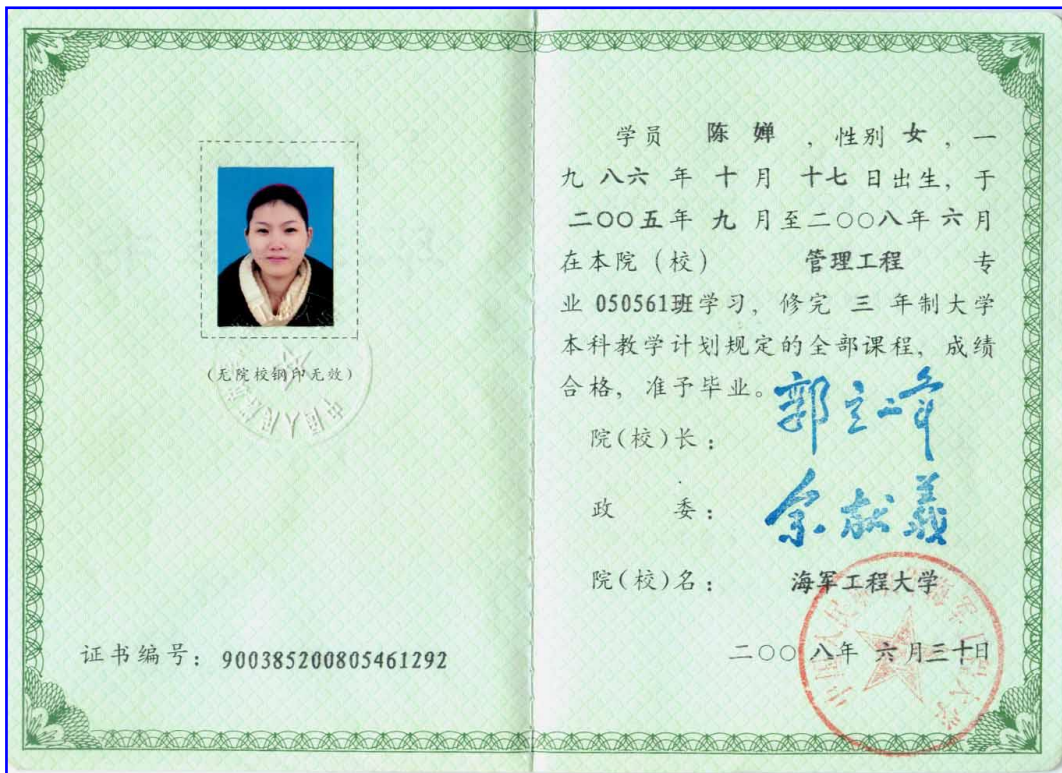 (无院校钢印无效)
证书编号：900385200805461292
学员 陈婵，性别女，一
九八六年十月十七日出生，于
二〇〇五年九月至二〇〇八年六月
在本院（校） 管理工程 专
业050561班学习，修完 三 年制大学
本科教学计划规定的全部课程，成绩
合格，准予毕业。
院(校)长：郭立峰
政 委：余献义
院(校)名：海军工程大学
二〇〇八年六月三十日